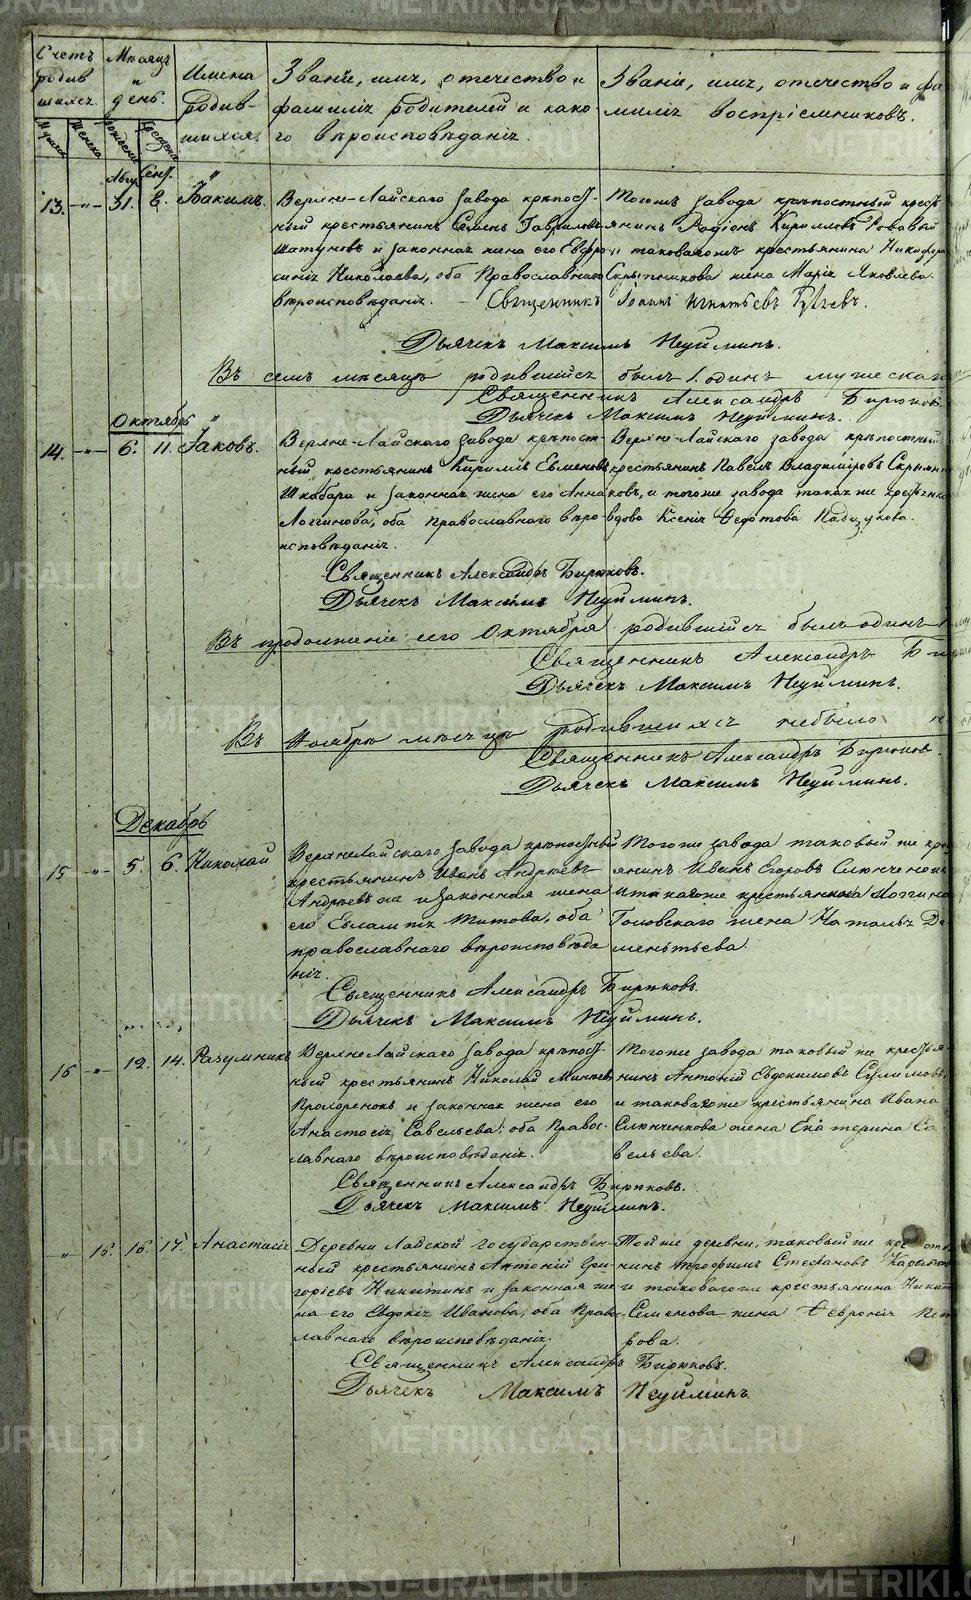 Счетъ родившихся.
Мѣсяцъ и день.
Имена родившихся.
Званіе, имя, отечество и фамилія родителей и какого вѣроисповѣданія.
Званіе, имя, отечество и фамилія воспріемниковъ.
Мужска Женска рожденія крещенія
Авгу. Сент.
13. -„- 31. 2. Іоакимъ.
Верхне-Лайскаго завода крѣпост-
ный крестьянинъ Семенъ Гавриловъ
Шатуновъ и законная жена его Евфро-
синія Николаева, оба Православнаго
вѣроисповѣданія.
Тогожъ завода крѣпостный крест
янинъ Родіонъ Кириловъ
и таковагожъ крестьянина Никифора
Скрыпникова жена Марія Яковлева.
Священникъ Іоаннъ Игнатьевъ
Дьячекъ Максимъ Неуйминъ.
Въ семъ мѣсяцѣ родившійся былъ 1. одинъ мужеска
Священникъ Александръ Бирюковъ
Дьячекъ Максимъ Неуйминъ.
Октябрь
14. -„- 6. 11. Іаковъ.
Верхне-Лайскаго завода крѣпост-
ный крестьянинъ Кириллъ Евменовъ
Шкабара и законная жена его Анна
Логгинова, оба православнаго вѣро-
исповѣданія.
Верхне-Лайскаго завода крѣпостный
крестьянинъ Павелъ Владиміровъ Скрыпни
ковъ, и тогоже завода такая же крестьянка
вдова Ксенія Федотова
Священникъ Александръ Бирюковъ.
Дьячекъ Максимъ Неуйминъ.
Въ продолженіе сего Октября родившійся былъ одинъ
Священникъ Александръ Би
Дьячекъ Максимъ Неуйминъ.
Въ Ноябрѣ мѣсяцѣ родившихся небыло
Священникъ Александръ Бирюков
Дьячекъ Максимъ Неуйминъ.
Декабрь
15 -„- 5. 6. Николай
ВерхнеЛайскаго завода крѣпостный
крестьянинъ Иванъ Андреевъ
Андреевъ же и законная жена
его Евлампія Титова, оба
православнаго вѣроисповѣда
нія.
Тогоже завода таковый же крес
янинъ Иванъ Егоровъ Слюнченокъ
и такагоже крестьянина Логгина
Головскаго жена Наталья Де
ментьева.
Священникъ Александръ Бирюковъ.
Дьячекъ Максимъ Неуйминъ.
16 -„- 12. 14. Разумникъ
ВерхнеЛайскаго завода крѣпост-
ный крестьянинъ Николай Минаев
Прохоренокъ и законная жена его
Анастасія Савельева; оба Правос-
лавнаго вѣроисповѣданія.
Тогоже завода таковый же крестья-
нинъ Антоній Евдокимовъ Сулимовъ,
и таковагоже крестьянина Ивана
Слюнченкова жена Екатерина Са
вельева.
Священникъ Александръ Бирюковъ.
Дьячекъ Максимъ Неуйминъ.
„ 15. 16. 17. Анастасія
Деревни Лайской государствен-
ный крестьянинъ Антоній Гри-
горіевъ Никитинъ и законная же
на его Евдокія Иванова, оба Право
лавнаго вѣроисповѣданія.
Тойже деревни, таковый же крестья
нинъ Трофимъ Стефановъ
и таковагоже крестьянина Никит
Семенова жена Февронія Пет
рова.
Священникъ Александръ Бирюковъ.
Дьячекъ Максимъ Неуйминъ
METRIKI.GASO-URAL.RU